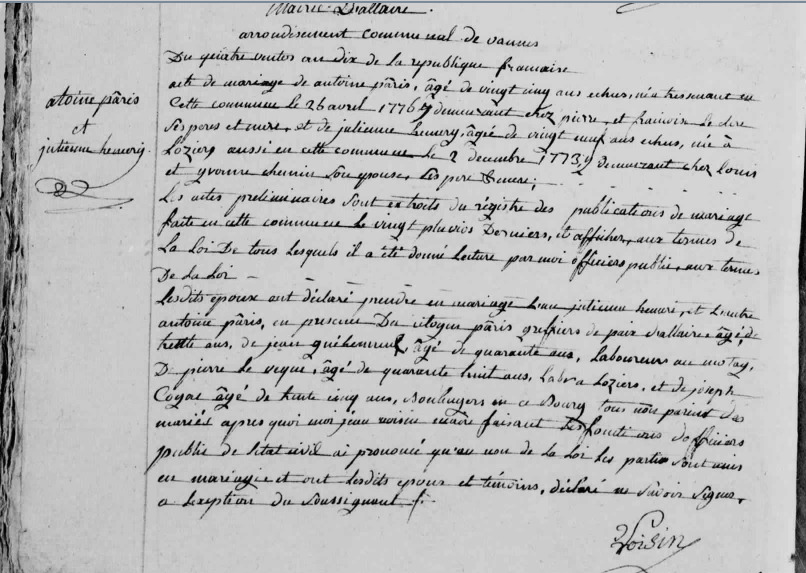 Mairie D'allaire.
arrondisement communal de vannes
Du quatre ventos an dix de la republique francaise
acte de mariage de antoine pâris, âgé de vingt cinq ans echus, né a tressenant en
Cette commune le 26 avril 1776 y demeurant chez pierre, et francoise le clere
Ses pere et mere, et de julienne hemery, âgée de vingt neuf ans echus, née à
Loziers aussi en cette commune le 2 decembre 1773, y demeurant chez Louis
et yvonne chemin Son epouse, Ses pere & mere;
Les actes preliminaires Sont extraits du régistre des publications de mariage
faite en cette commune le vingt pluvios Derniers, et afficher, aux termes de
La Loi De tous Lesquels il a été donné Lecture par moi officiers public, aux termes
De La Loi
Lesdits epoux ont déclaré prendre en mariage L'un julienne hemeri, et L'autre
antoine pâris, en presence Du citoyen pâris greffiers de paix d'allaire, âgé de
trente ans, de jean guéhenneuc, âgé de quarante ans, Laboureurs au
D pierre le veque, âgé de quarante huit ans, Lab. a Loziers, et de joseph
Coyac âgé de trente cinq ans, Boulangers en ce Bourg tous nos parent des
mariés apres quoi moi jean voisin maire faisant Les fonctions d'officiers
public de l'etat civil ai prononcé qu'au nom de La Loi Les parties Sont unis
en mariage et ont Lesdits epoux et témoins, déclaré ne Savoir Signer,
a L'exeption du Soussignant /.
atoine pâris
et
julienne hemery.
Voisin